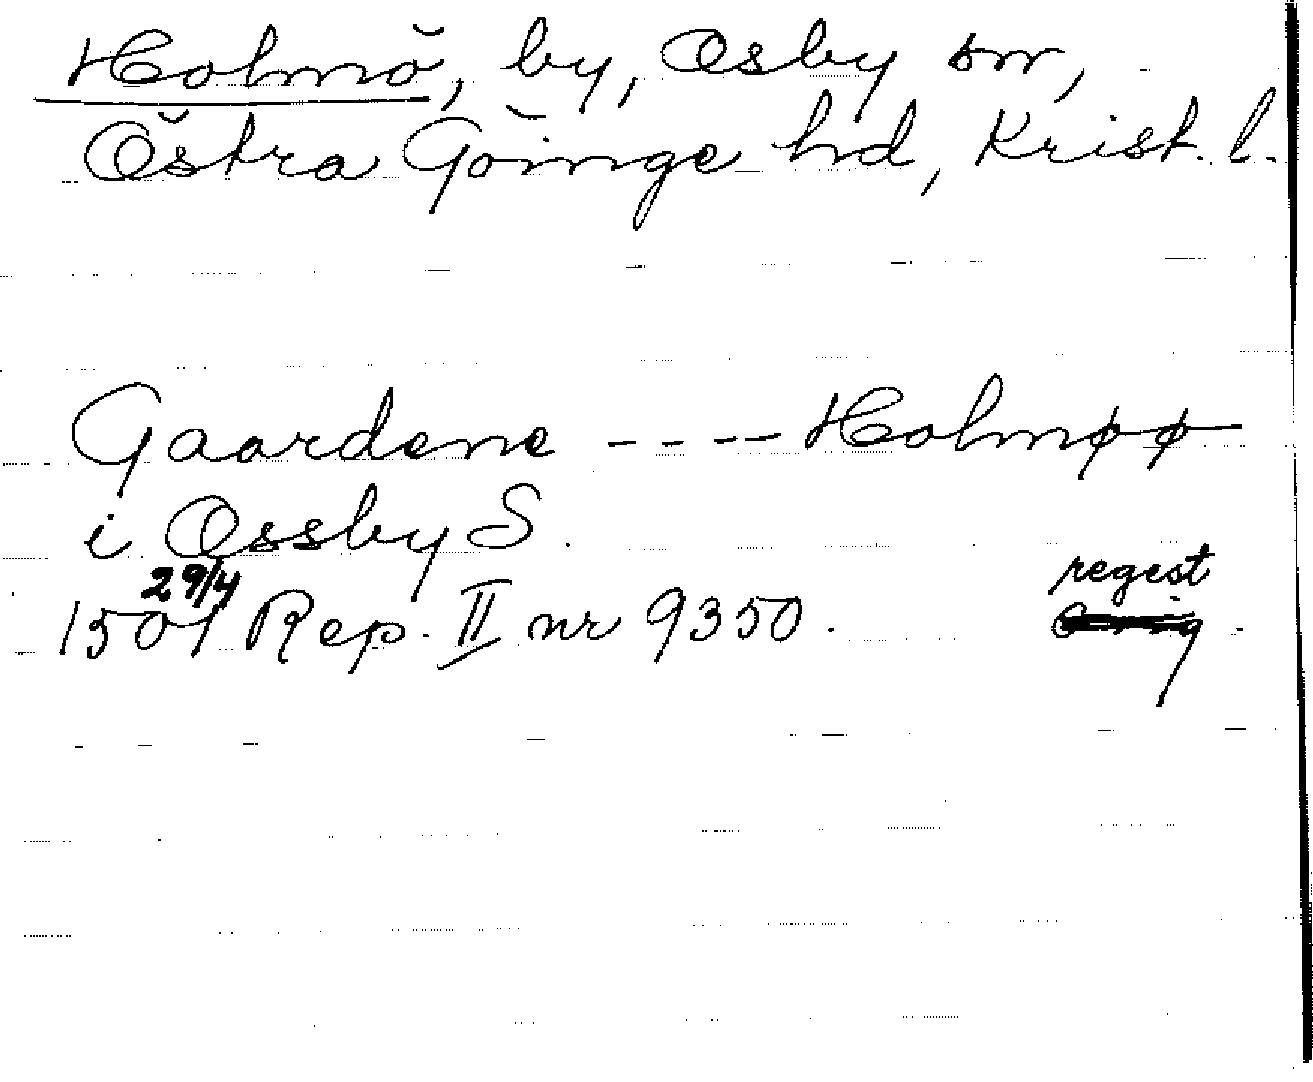 Holmö, by, Osby sn,
Östra Göinge hd, Krist. l.
Gaardene ---- Holmøø
i Ossby S.
29/4
1501 Rep. II nr 9350.
regest